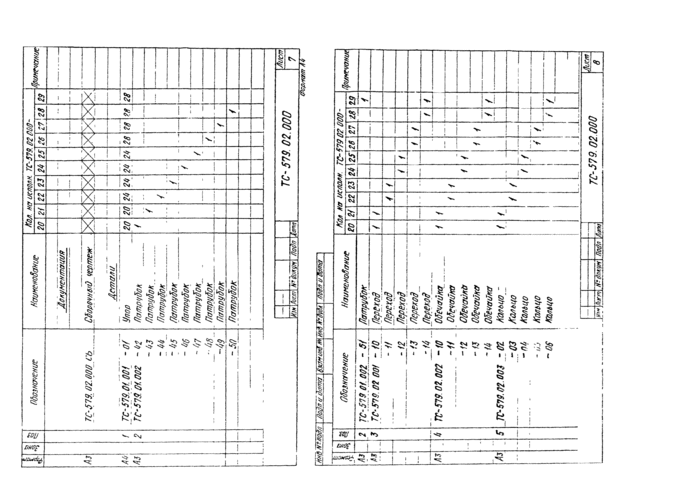 Формат Зона Поз. Обозначение Наименование Кол. на исполн. ТС-579.02.000- Примечание
20 21 22 23 24 25 26 27 28 29
Документация
А3 ТС-579.02.000 СБ Сборочный чертеж
Детали
А4 1 ТС-579.01.001 - 01 Утор 20 20 24 24 24 24 28 28 28 28
А3 2 ТС-579.01.002 - 42 Патрубок 1
- 43 Патрубок 1
- 44 Патрубок 1
- 45 Патрубок 1
- 46 Патрубок 1
- 47 Патрубок 1
- 48 Патрубок 1
- 49 Патрубок 1
- 50 Патрубок 1
Изм Лист № докум. Подп. Дата
ТС-579.02.000
Лист
7
Формат А4
Инв № подл. Подп и дата Взам инв № Инв № дубл. Подп и дата
Формат Зона Поз. Обозначение Наименование Кол. на исполн. ТС-579.02.000- Примечание
20 21 22 23 24 25 26 27 28 29
А3 2 ТС-579.01.002 - 51 Патрубок 1
А3 3 ТС-579.02.001 - 10 Переход 1 1
- 11 Переход 1 1
- 12 Переход 1 1
- 13 Переход 1 1
- 14 Переход 1 1
А3 4 ТС-579.02.002 - 10 Обечайка 1 1
- 11 Обечайка 1 1
- 12 Обечайка 1 1
- 13 Обечайка 1 1
- 14 Обечайка 1 1
А3 5 ТС-579.02.003 - 02 Кольцо 1 1
- 03 Кольцо 1 1
- 04 Кольцо 1 1
- 05 Кольцо 1 1
- 06 Кольцо 1 1
Изм Лист № докум. Подп. Дата
ТС-579.02.000
Лист
8